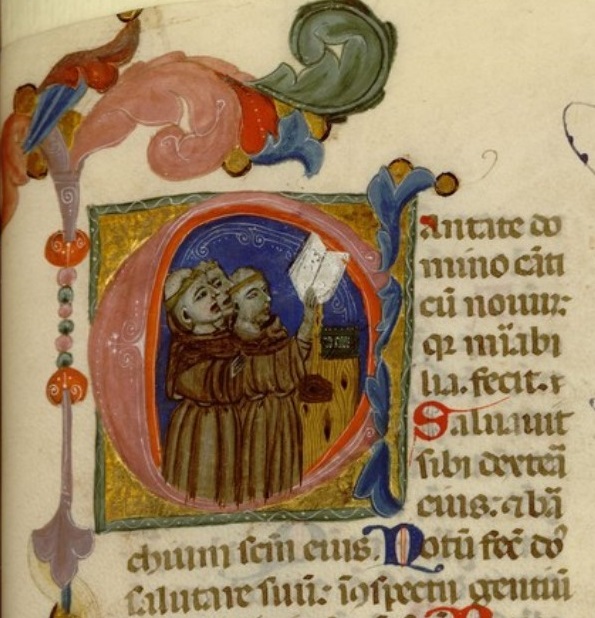 Cantate do
mino cãti
cũ nouũ:
q̃ mĩabi
lia. fecit. ⁊
Saluauit
sibi dexteã
eius: ⁊ bã
chium scm̃ eius. Notũ fec̃ dõ
salutare suũ: ĩ ɔspectu gentiũ